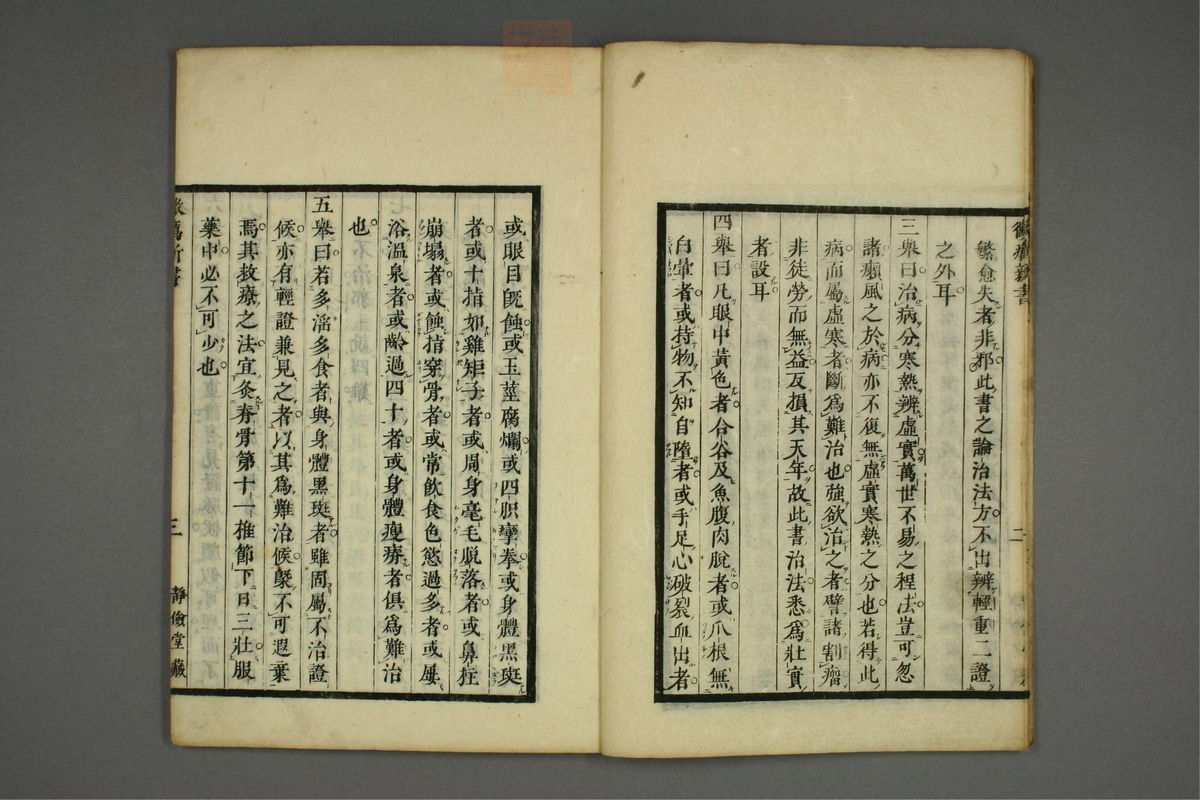 繁愈失者非邪此書之論治法方不出辨輕重二證
之外耳
三舉曰治病分寒熱辨虛實萬世不易之程法豈可忽
諸癩風之於病亦不復無虛實寒熱之分也若得此
病而屬虛寒者斷為難治也強欲治之者譬諸割瘤
非徒勞而無益反損其天年故此書治法悉為壯實
者設耳
四舉曰凡眼中黃色者合谷及魚腹肉脫者或爪根無
白暈者或持物不知自墮者或手足心破裂血出者
二
或眼目既蝕或玉莖腐爛或四肢攣拳或身體黑斑
者或十指如雞距子者或周身毫毛脫落者或鼻柱
崩塌者或蝕指穿骨者或常飲食色慾過多者或屢
浴溫泉者或齡過四十者或身體瘦瘠者俱為難治
也
五舉曰若多淫多食者與身體黑斑者雖固屬不治證
候亦有輕證兼見之者以其為難治候槩不可遐棄
焉其救療之法宜灸脊骨第十一椎節下日三壯服
藥中必不可少也
三
靜儉堂藏